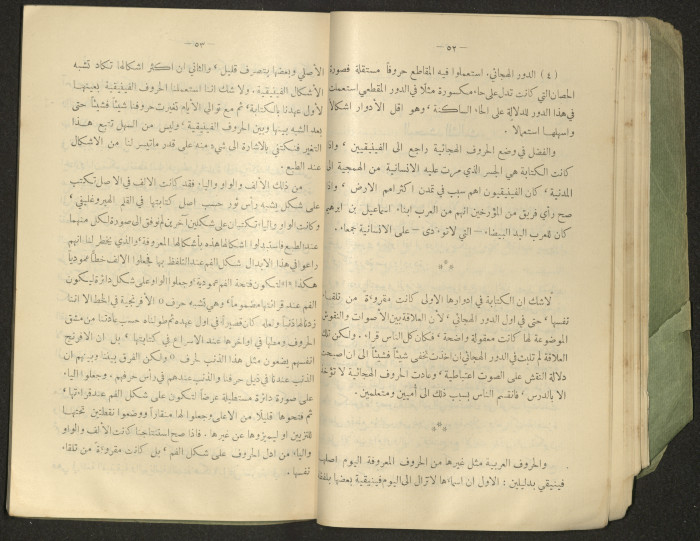 — ٥٢ —
( ٤ ) الدور الهجائي، استعملوا فيه المقاطع حروفاً مستقلة فصورة
الحصان التي كانت تدل على حاء مكسورة مثلًا في الدور المقطعي استعملت
في هذا الدور للدلالة على الحاء الساكنة ، وهو اقل الأدوار اشكالًا
واسهلها استعمالًا .
والفضل في وضع الحروف الهجائية راجع الى الفينيقيين ، واذا
كانت الكتابة هي الجسر الذي مرت عليه الانسانية من الهمجية الى
المدنية ، كان الفينيقيون اهم سبب في تمدن اكثر امم الارض ، واذا
صح رأي فريق من المؤرخين انهم من العرب ابناء اسماعيل بن ابرهيم
كان للعرب اليد البيضاء – التي لا تؤدى – على الانسانية جمعاء .
***
لا شك ان الكتابة في ادوارها الاولى كانت مقروءة من تلقاء
نفسها ، حتى في اول الدور الهجائي ، لأن العلاقة بين الأصوات والنقوش
الموضوعة لها كانت معقولة واضحة ، فكان كل الناس قراء . ولكن تلك
العلاقة لم تلبث في الدور الهجائي ان اخذت تخفى شيئًا فشيئًا الى ان اصبحت
دلالة النقش على الصوت اعتباطية ، وعادت الحروف الهجائية لا تؤخذ
الا بالدرس ، فانقسم الناس بسبب ذلك الى أميين ومتعلمين .
***
والحروف العربية مثل غيرها من الحروف المعروفة اليوم اصلها
فينيقي بدليلين : الاول ان اسماءها لا تزال الى اليوم فينيقية بعضها بلفظه
— ٥٣ —
الأصلي وبعضها بتصرف قليل ، والثاني ان اكثر اشكالها تكاد تشبه
الأشكال الفينيقية . ولا شك اننا استعملنا الحروف الفينيقية بعينها
لأول عهدنا بالكتابة ، ثم مع توالي الأيام تغيرت حروفنا شيئًا فشيئًا حتى
بعد الشبه بينها وبين الحروف الفينيقية ، وليس من السهل تتبع هذا
التغير فنكتفي بالاشارة الى شيء منه على قدر ما تيسر لنا من الاشكال
عند الطبع .
من ذلك الألف والواو والياء فقد كانت الالف في الاصل تكتب
على شكل يشبه رأس ثور حسب اصل كتابتها في القلم الهيروغليفي ،
وكانت الواو والياء تكتبان على شكلين آخرين لم نوفق الى صورة لكل منهما
عند الطبع فاستبدلوا اشكالها هذه بأشكالها المعروفة ، والذي يخطر لنا انهم
راعوا في هذا الابدال شكل الفم عند التلفظ بها فجعلوا الالف خطًا عموديًا
هكذا «ا» لتكون فتحة الفم عمودية ، وجعلوا الواو على شكل دائرة ليكون
الفم عند قراءتها مضمومًا ، وهي تشبه حرف o الأفرنجية في الخط الا اننا
زدنا لها ذنبًا ولعله كان قصيرًا في اول عهده ثم طولناه حسب عادتنا من مشق
الحروف ومطها في اواخرها عند الاسراع في كتابتها ، بل ان الافرنج
انفسهم يضعون مثل هذا الذنب لحرف o ولكن الفرق بيننا وبينهم ان
الذنب عندنا في ذيل حرفنا والذنب عندهم في رأس حرفهم . وجعلوا الياء
على صورة دائرة مستطيلة عرضًا لتكون على شكل الفم عند قراءتها ،
ثم فتحوها قليلًا من الاعلى وجعلوا لها منقارًا ووضعوا نقطتين تحتها
للتزيين او ليميزوها عن غيرها . فاذا صح استنتاجنا كانت الألف والواو
والياء من ادل الحروف على شكل الفم ، بل كانت مقروءة من تلقاء
نفسها .